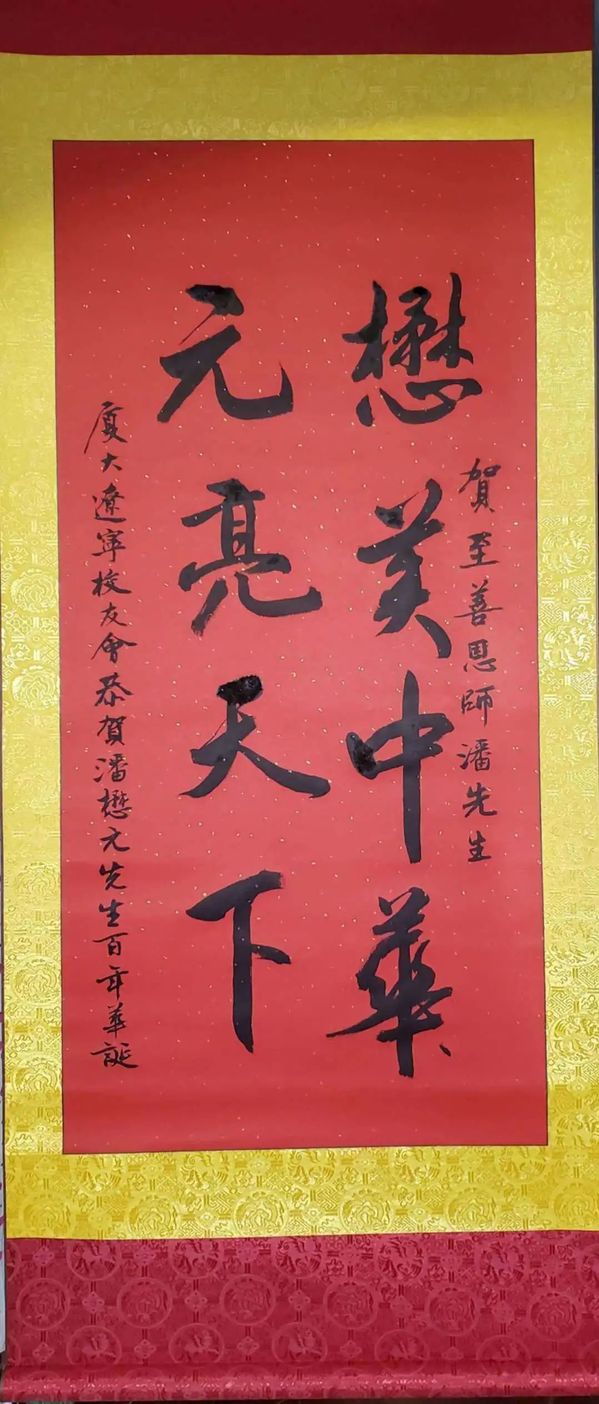 賀至善恩師潘先生
懋美中華
元亮天下
廈大遼寧校友會恭賀潘懋元先生百年華誕